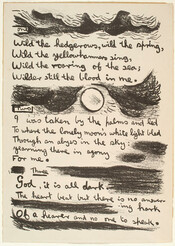 one
Wild the hedgerows, wild the spring,
Wild the yellowhammers sing,
Wild the roaring of the sea:
Wilder still the blood in me.
Two
I was taken by the palms and led
To where the lonely moon's white light bled
Through an abyss in the sky:
yearning there in agony
For me.
Three
God, it is all dark
The heart beat but there is no answer-
ing hark
Of a hearer and no one to speak.